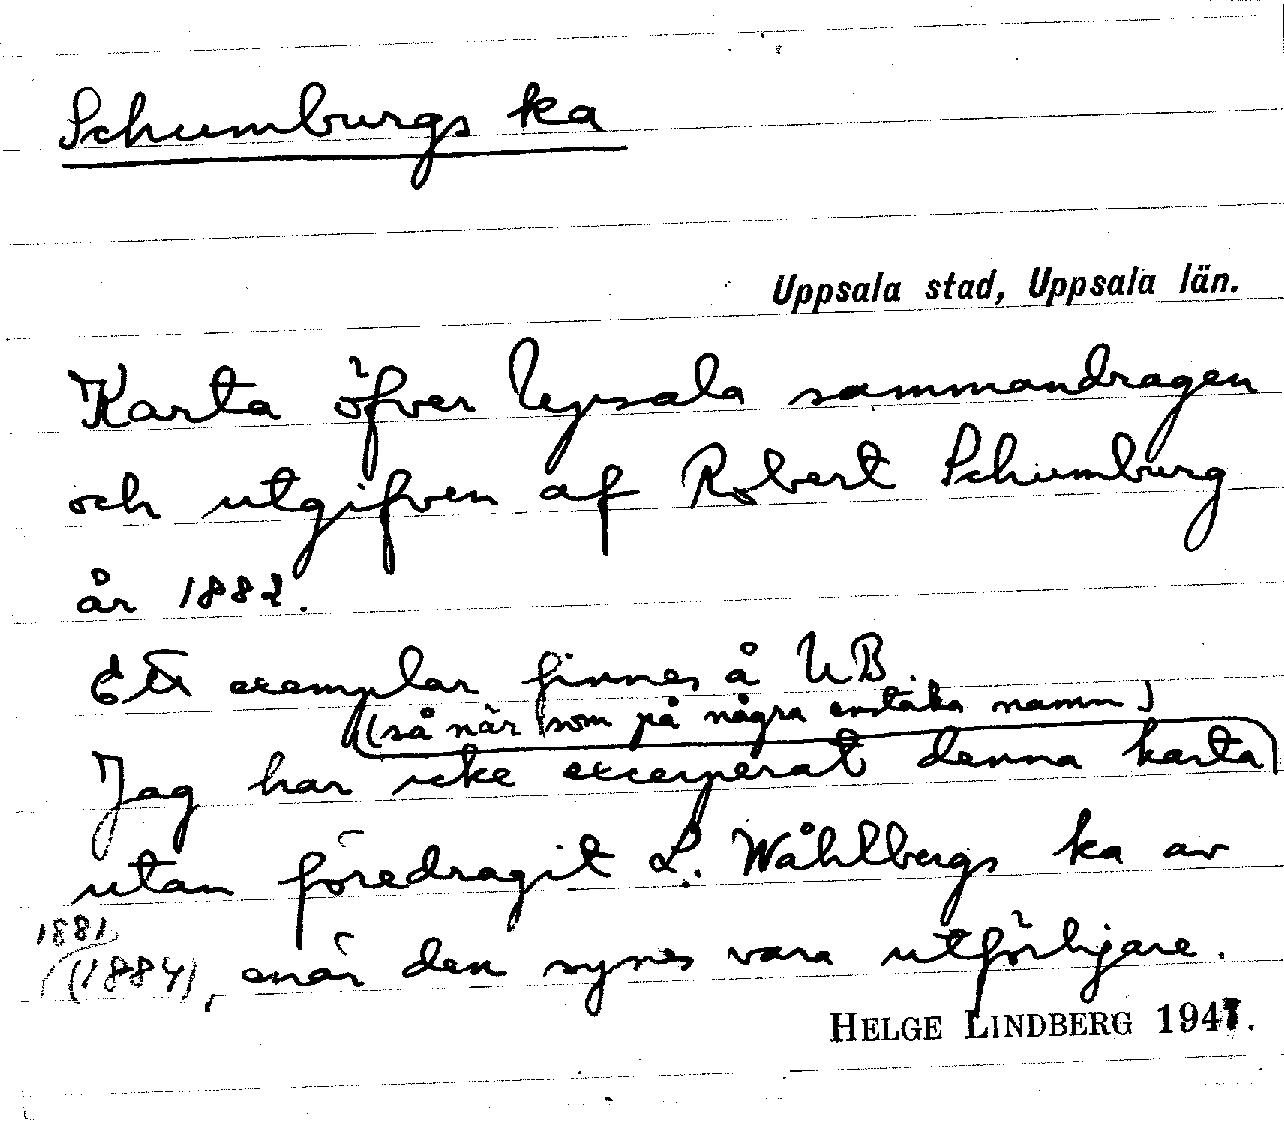 Schumburgs ka
Uppsala stad, Uppsala län.
Karta öfver Upsala sammandragen
och utgifven af Robert Schumburg
år 1882.
Ett exemplar finnes å UB.
(så när som på några enstaka namn)
Jag har icke excerperat denna karta
utan föredragit L. Wåhlbergs ka av
1881
(1884), enär den synes vara utförligare.
HELGE LINDBERG 1947.